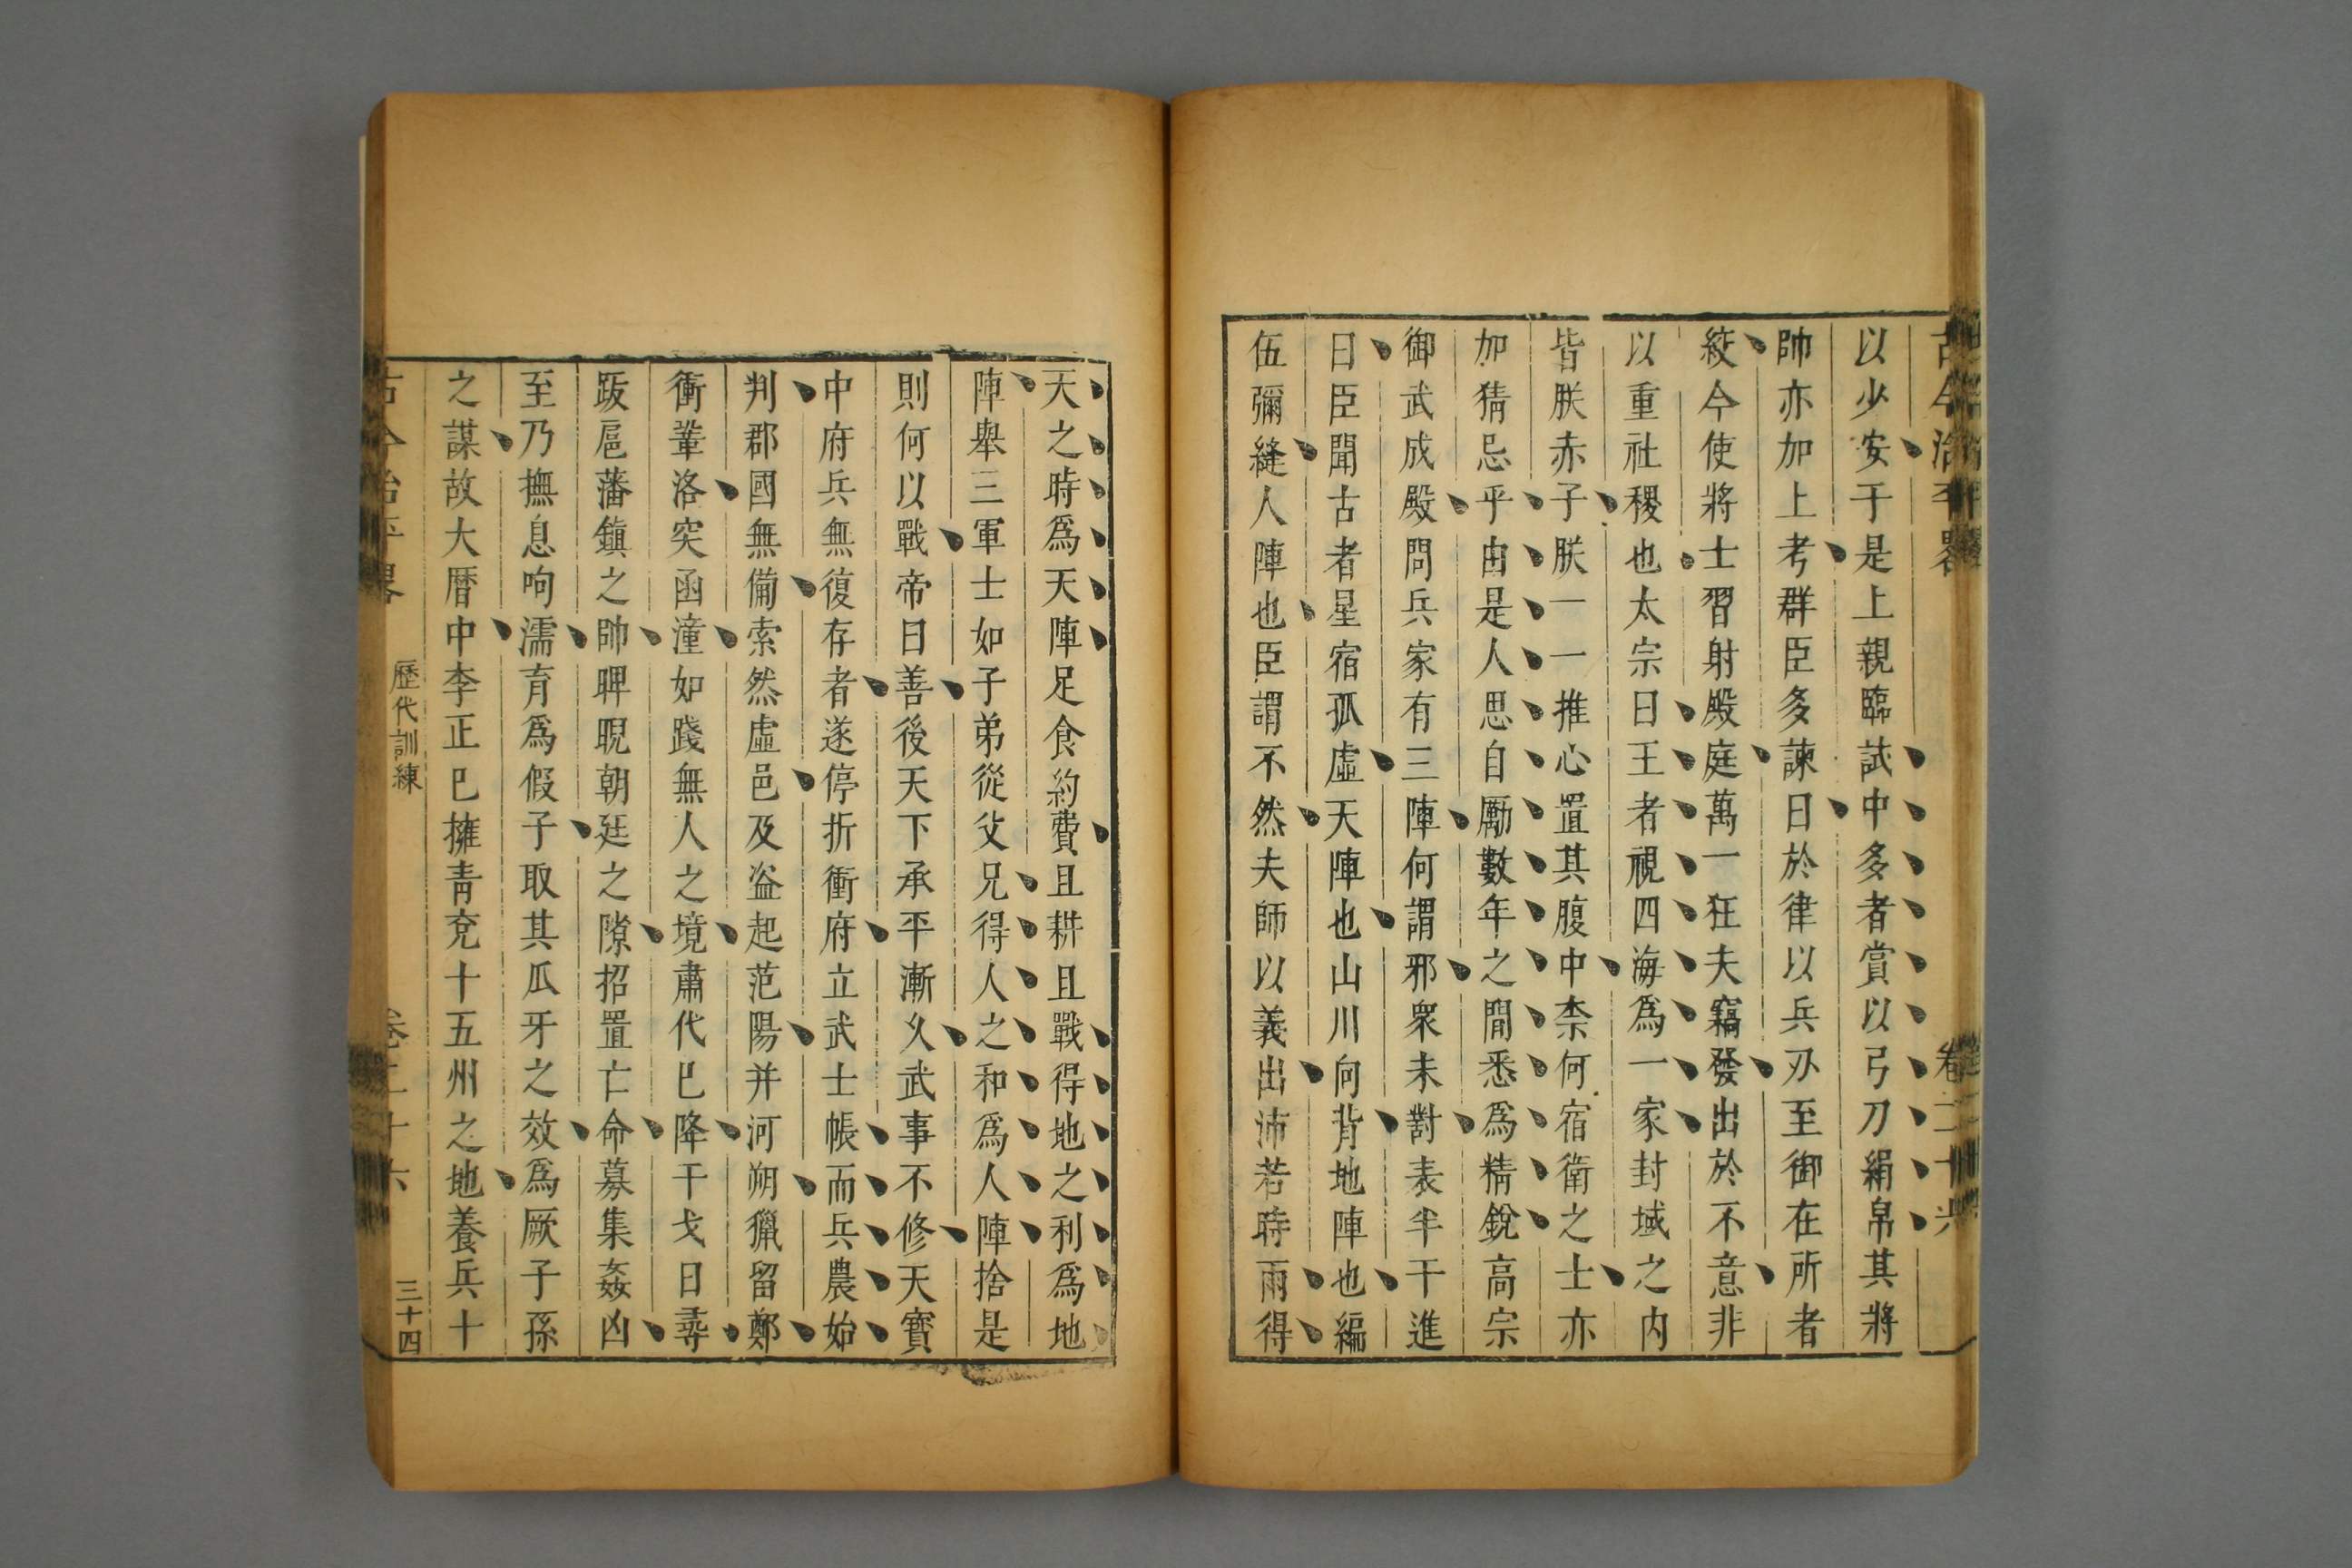 古今治平畧 卷二十六
以少安于是上親臨試中多者賞以弓刀絹帛其將
帥亦加上考群臣多諫曰於律以兵刃至御在所者
絞今使將士習射殿庭萬一狂夫竊發出於不意非
以重社稷也太宗曰王者視四海爲一家封域之内
皆朕赤子朕一一推心置其腹中柰何宿衛之士亦
加猜忌乎由是人思自勵數年之間悉爲精銳高宗
御武成殿問兵家有三陣何謂邪衆未對表半千進
曰臣聞古者星宿孤虛天陣也山川向背地陣也編
伍彌縫人陣也臣謂不然夫師以義出沛若時雨得
天之時爲天陣足食約費且耕且戰得地之利爲地
陣舉三軍士如子弟從父兄得人之和爲人陣捨是
則何以戰帝曰善後天下承平漸久武事不修天寶
中府兵無復存者遂停折衝府立武士帳而兵農始
判郡國無備索然虛邑及盗起范陽并河朔獵留鄭
衝鞏洛突函潼如踐無人之境肅代巳降干戈日尋
跋扈藩鎮之帥睥睨朝廷之隙招置亡命募集姦凶
至乃撫息呴濡育爲假子取其瓜牙之效爲厥子孫
之謀故大曆中李正巳擁靑兗十五州之地養兵十
古今治平畧 歷代訓練 卷二十六 三十四